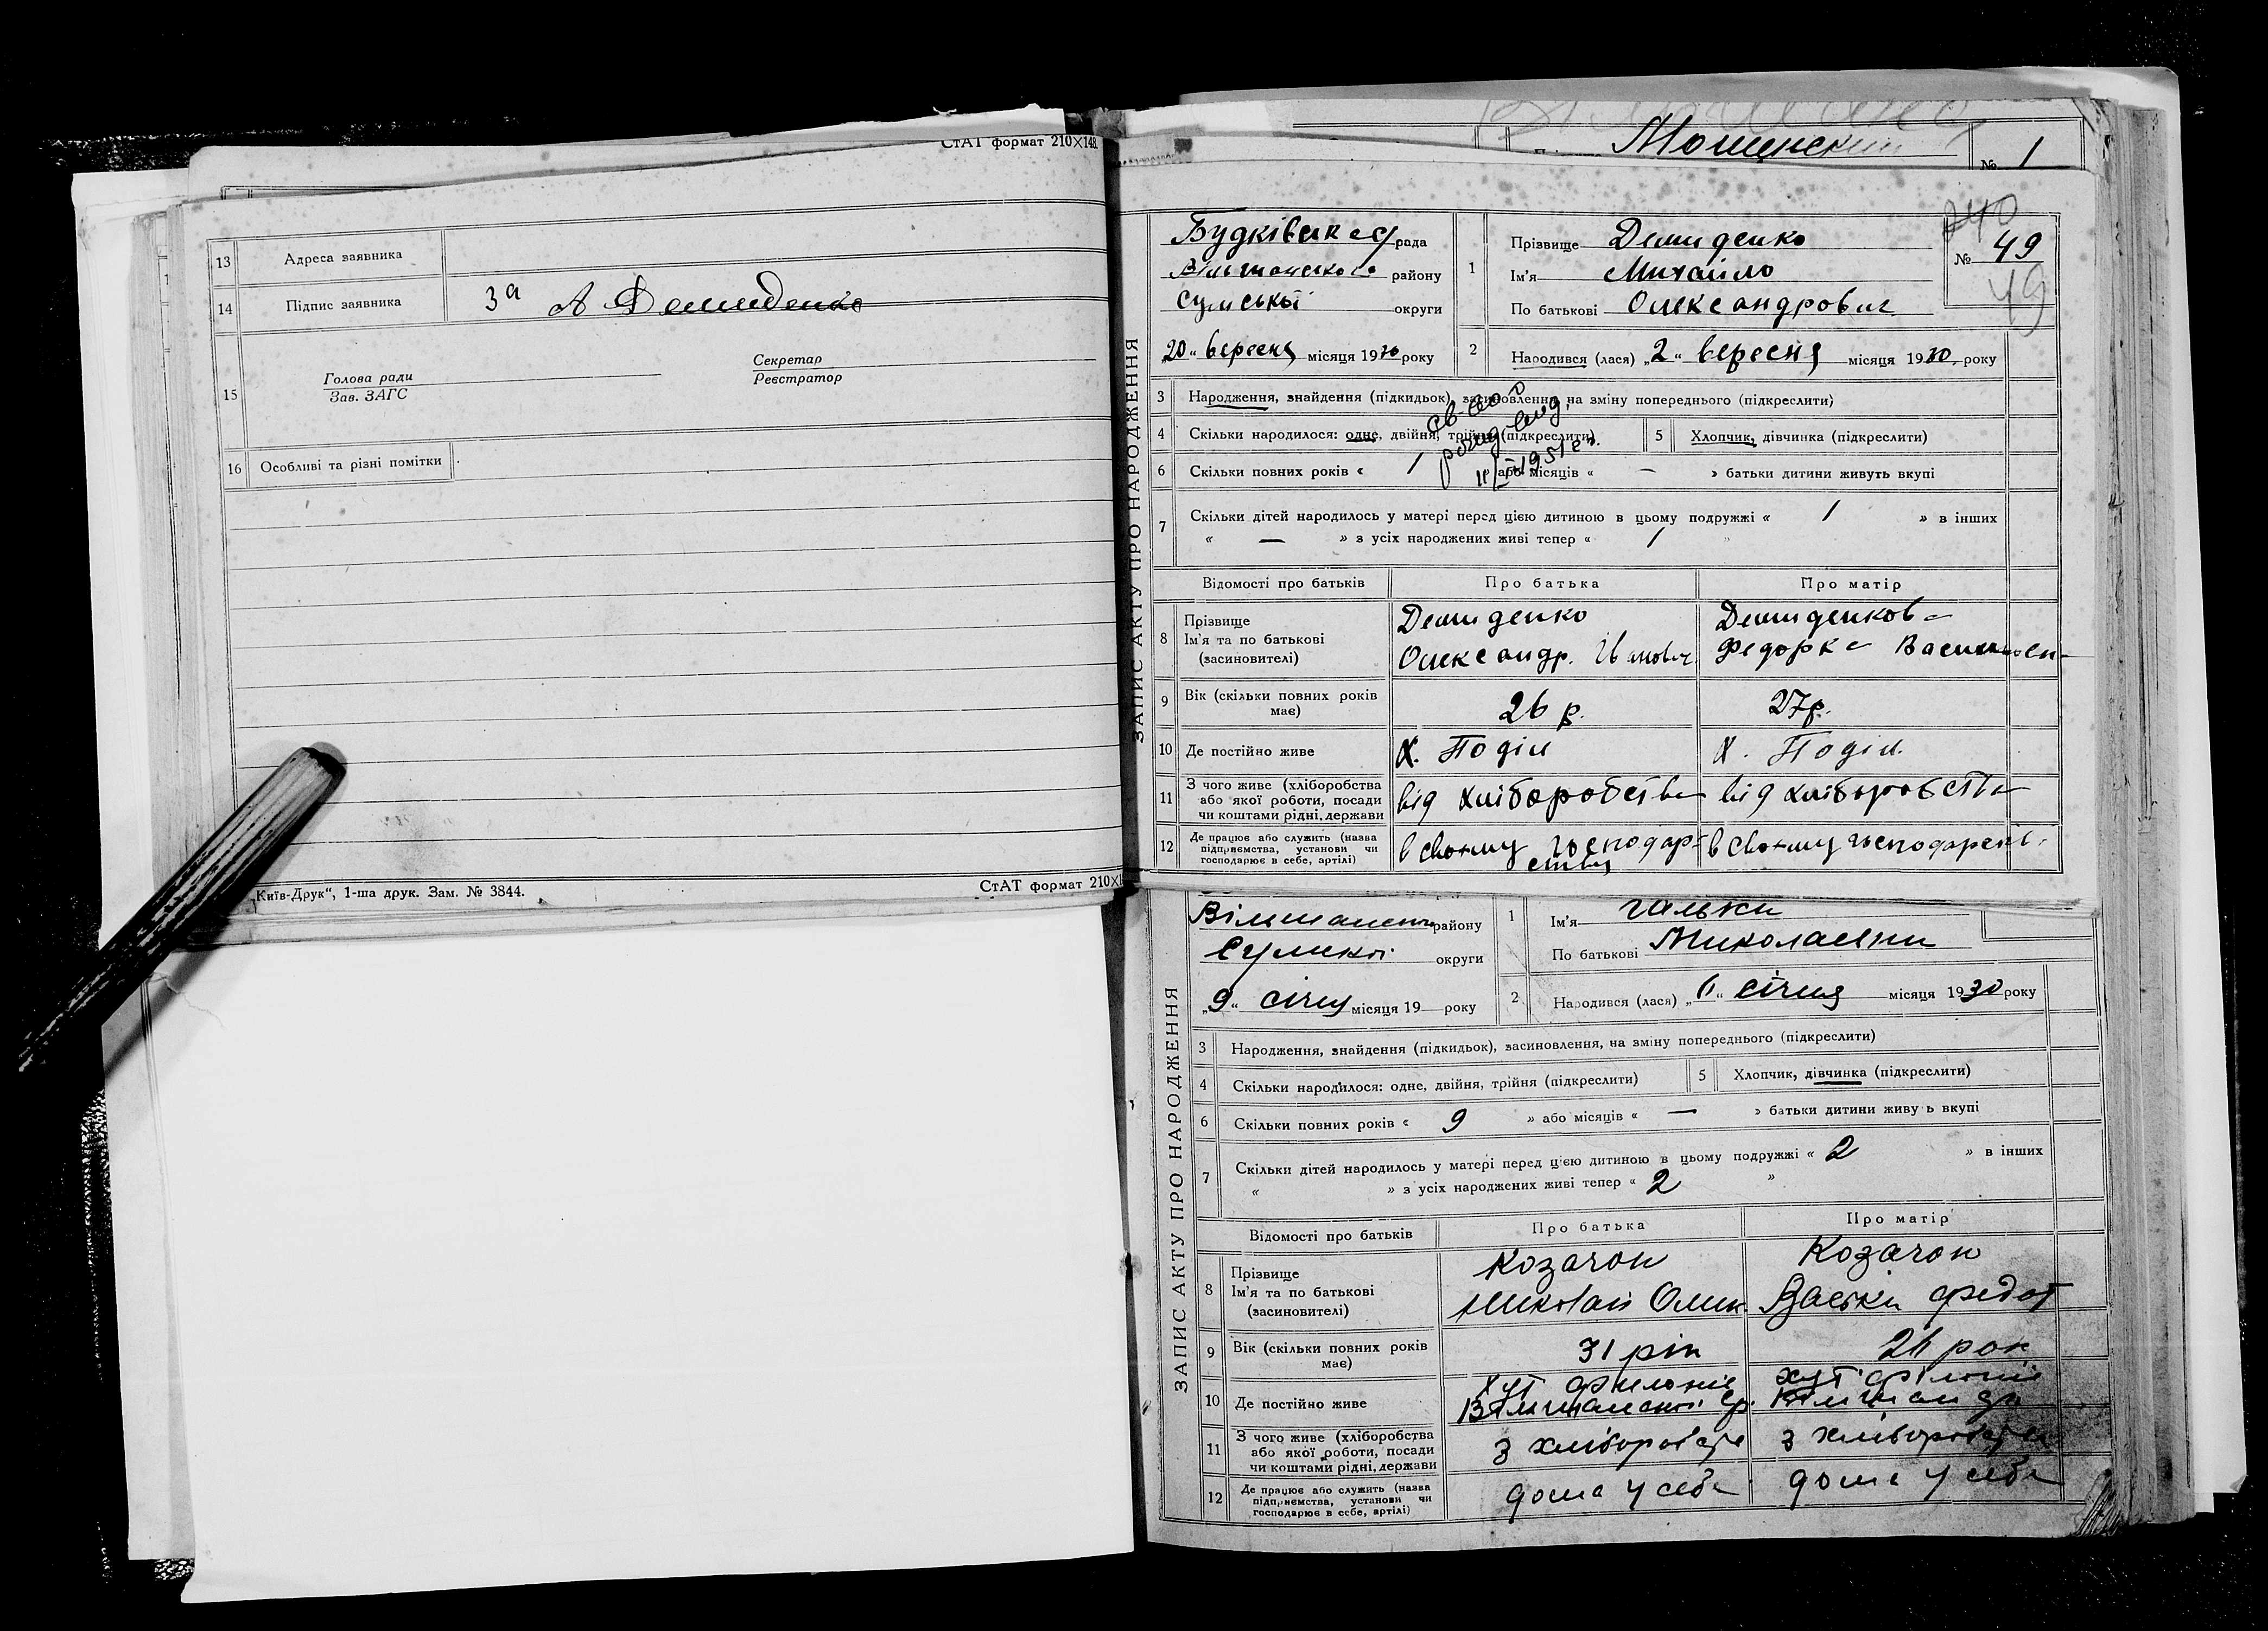 СтАТ формат 210×148.
13 Адреса заявника
14 Підпис заявника За А Демиденко
15 Голова ради Секретар
Зав. ЗАГС Реєстратор
16 Особливі та різні помітки
Київ-Друк“, 1-ша друк. Зам. № 3844. СтАТ формат 210×1
№ 1
ЗАПИС АКТУ ПРО НАРОДЖЕННЯ
240
Будківська рада
Вільшанського району
Сумської округи
„20“ вересня місяця 1930 року
1 Прізвище Демиденко
Ім'я Михайло
По батькові Олександрович
№ 49
49
2 Народився (лася) „2“ вересня місяця 1930 року
3 Народження, знайдення (підкидьок), засиновлення, на зміну попереднього (підкреслити)
4 Скільки народилося: одне, двійня, трійня (підкреслити) 5 Хлопчик, дівчинка (підкреслити)
6 Скільки повних років « 1 » або місяців « — » батьки дитини живуть вкупі
св-во о
рожд. выд.
1951 г.
7 Скільки дітей народилось у матері перед цією дитиною в цьому подружжі « 1 » в інших
« — » з усіх народжених живі тепер « 1 »
Відомості про батьків Про батька Про матір
8 Прізвище Ім'я та по батькові (засиновителі)
Демиденко
Олександр. Іванович
Демиденкова
Федорка
9 Вік (скільки повних років має) 26 р. 27 р.
10 Де постійно живе х. Поділ х. Поділ.
11 З чого живе (хліборобства або якої роботи, посади чи коштами рідні, держави від хліборобства від хліборобства
12 Де працює або служить (назва підприємства, установи чи господарює в себе, артілі) в своєму господарстві в своєму господарстві.
ЗАПИС АКТУ ПРО НАРОДЖЕННЯ
району
Сумської округи
„9“ січня місяця 19 року
1 Ім'я Гальки
По батькові Миколаєвни
2 Народився (лася) січня місяця 1930 року
3 Народження, знайдення (підкидьок), засиновлення, на зміну попереднього (підкреслити)
4 Скільки народилося: одне, двійня, трійня (підкреслити) 5 Хлопчик, дівчинка (підкреслити)
6 Скільки повних років « 9 » або місяців « — » батьки дитини живу ь вкупі
7 Скільки дітей народилось у матері перед цією дитиною в цьому подружжі « 2 » в інших
« » з усіх народжених живі тепер « 2 »
Відомості про батьків Про батька Про матір
8 Прізвище Ім'я та по батькові (засиновителі)
Козачок
Николай
Козачок
Васьки Федот
9 Вік (скільки повних років має) 31 рік рок
10 Де постійно живе хут хут
11 З чого живе (хліборобства або якої роботи, посади чи коштами рідні, держави з хліборобства з хліборобства
12 Де працює або служить (назва підприємства, установи чи господарює в себе, артілі) дома у себе дома у себе